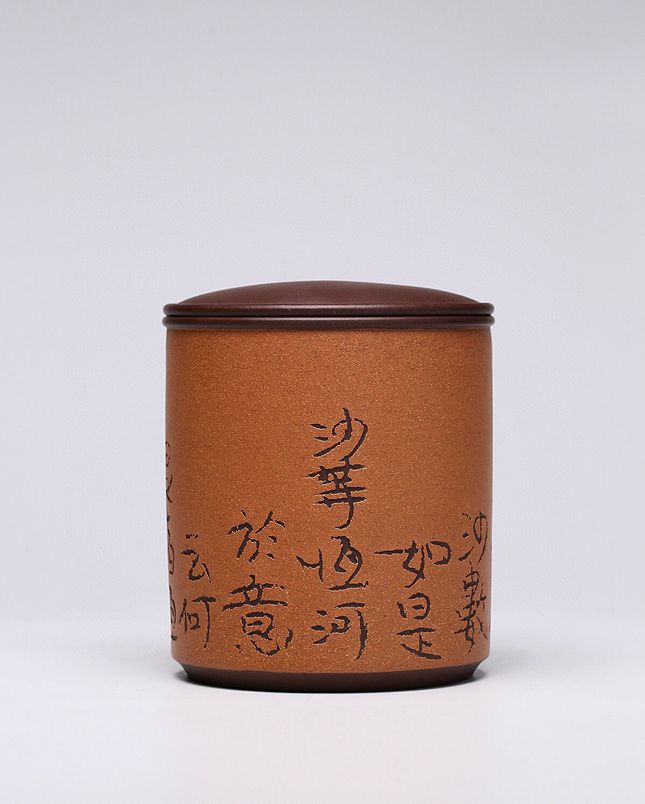 沙數
如是
沙等恆河
於意
云何